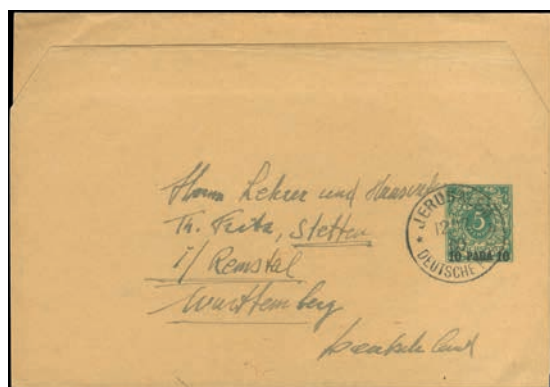 Herrn Lehrer und Hausvater
Th. Fritz, Stetten
i/ Remstal
Württemberg
Deutschland
JERUSALEM
12
DEUTSCHE
5
10 PARA 10